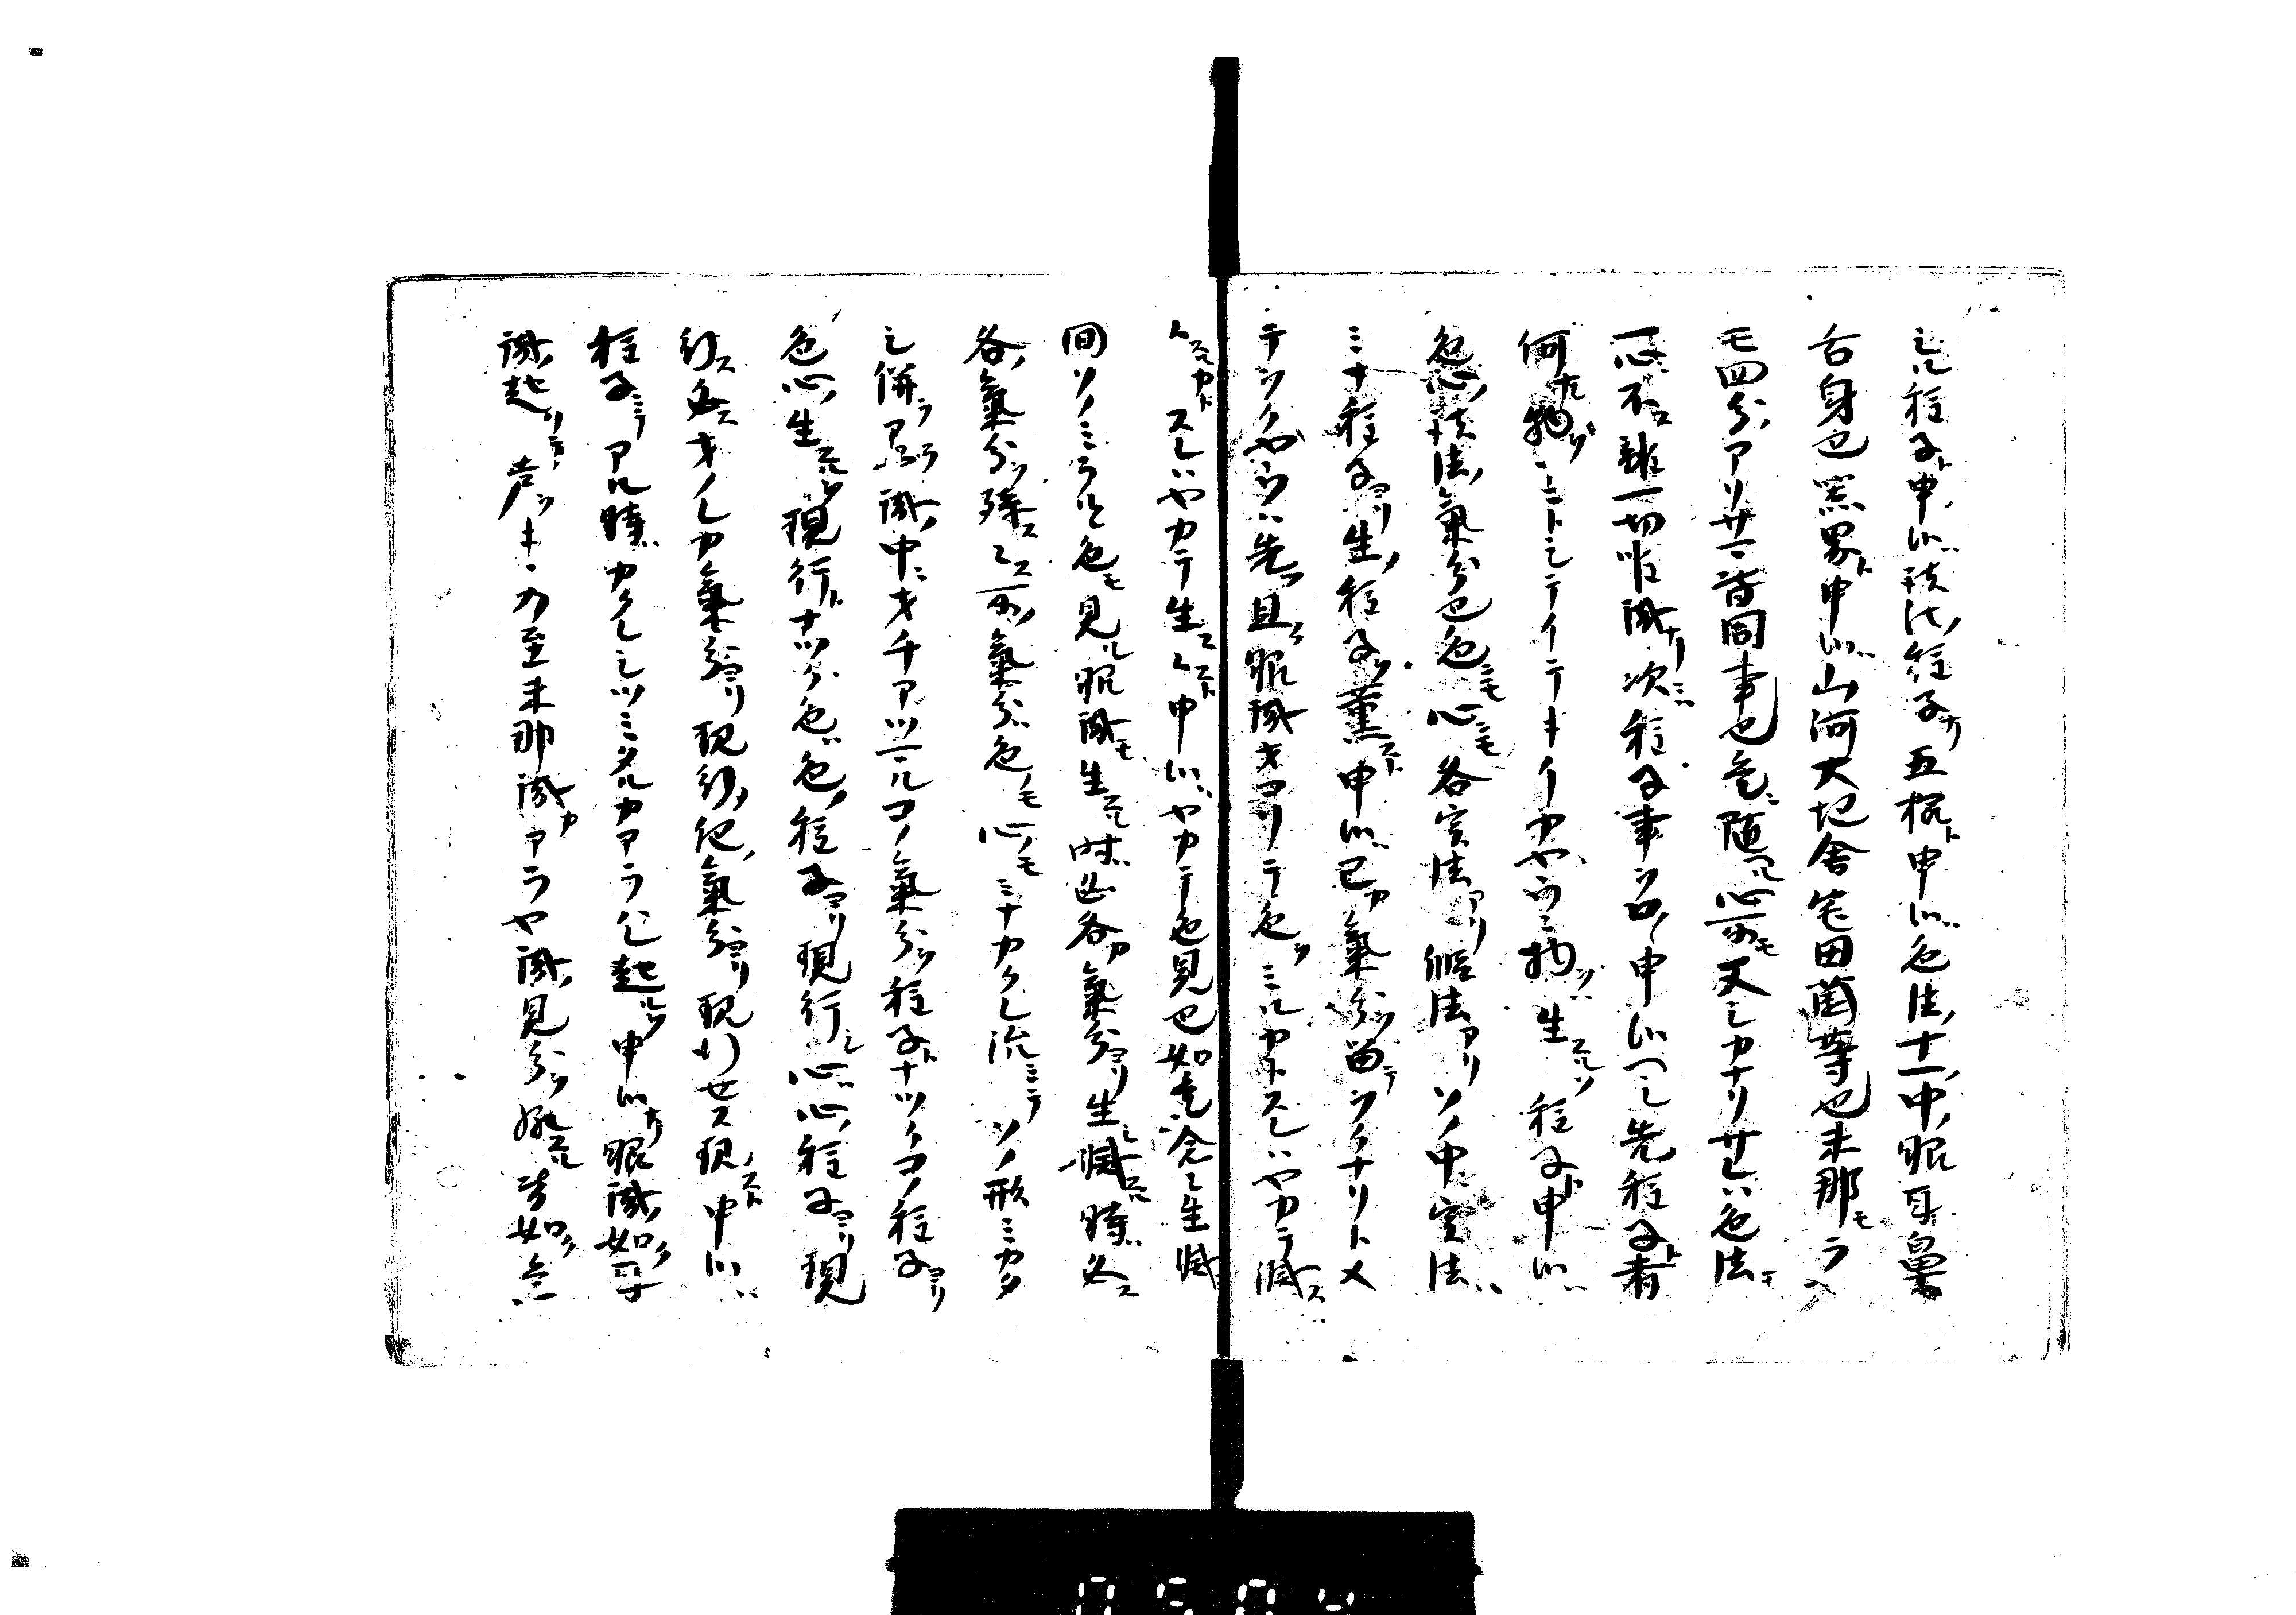 シル種子ト申ハ諸法ノ種子ナリ五根ト申ハ色法ノ十一ノ中ノ眼耳鼻
舌身也器界ト申ハ山河大地舍宅田薗等也末那モラ
モ四分ノアリサマ皆同事也色ニ随ヘル心所モ又シカナリサレハ色法モ
心ニ不離一切唯識ナリ次ニ種子ノ事ヲロ〳〵申ヘシ先種子ト者
何ナル物ソ トシテイテキイカヤウニ物ヲ生スルソ種子ト申ハ
色心ノ諸法ノ氣分也色ニモ心ニモ各實法アリ假法アリソノ中ニ實法ハ
ミナ種子ヨリ生ノ種子ヲ薫スト申ハ己カ氣分ヲ留テヲクナリトメ
テヲクヤウハ先ツ且ク眼識ヲコリテ色ヲミルカトスレハヤカテ滅ス
トスルカトスレハヤカテ生スト申ハヤカテ色見也如是念々生滅
間ソノミラルヽ色モ見ル眼識モ生スル時ハ必各カ氣分ヨリ生シ滅スル時ハ必ス
各ノ氣分ヲ殘ス所ノ氣分ハ色ノモ心ノモミナカクレ沈ミテソノ形ミカタ
シ併ラアラ識ノ中ニヲチアツマルコノ氣分ヲ種子トナツクコノ種子ヨリ
色心ノ生スルヲ現行トナツク色ハ色ノ種子ヨリ現行シ心ハ心ノ種子ヨリ現
行ス必スヲノレカ氣分ヨリ現行ノ他ノ氣分ヨリ現行セス現スト申ハ
種子ニテアル時ハカクレシツミタルカアラハレ起ルヲ申ナリ眼識ノ如ク耳
識ノ起リテ声ヲキヽ乃至末那識カアラヤ識ノ見分ヲ縁スル皆如是